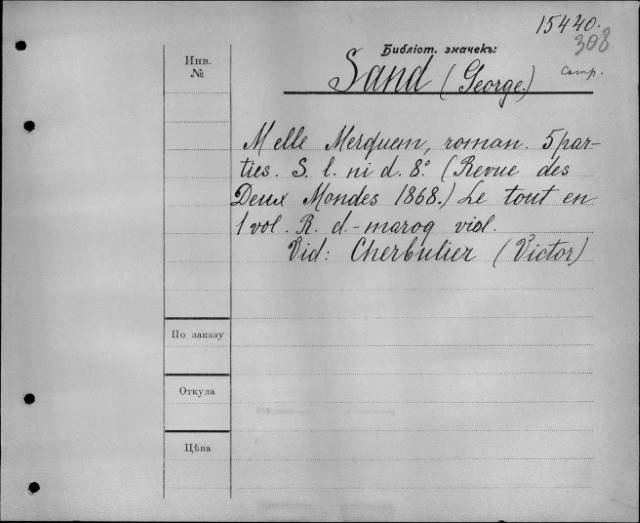 15440.
308
Библіот. значекъ:
Инв.
№
Sand (George.)
Comp.
Melle Merquem, roman. 5 par-
ties. S. l. ni d. 8° (Revue des
Deux Mondes 1868.) Le tout en
1 vol. R. d.-maroq viol.
Vid: Cherbulier (Victor)
По заказу
Откуда
Цѣна